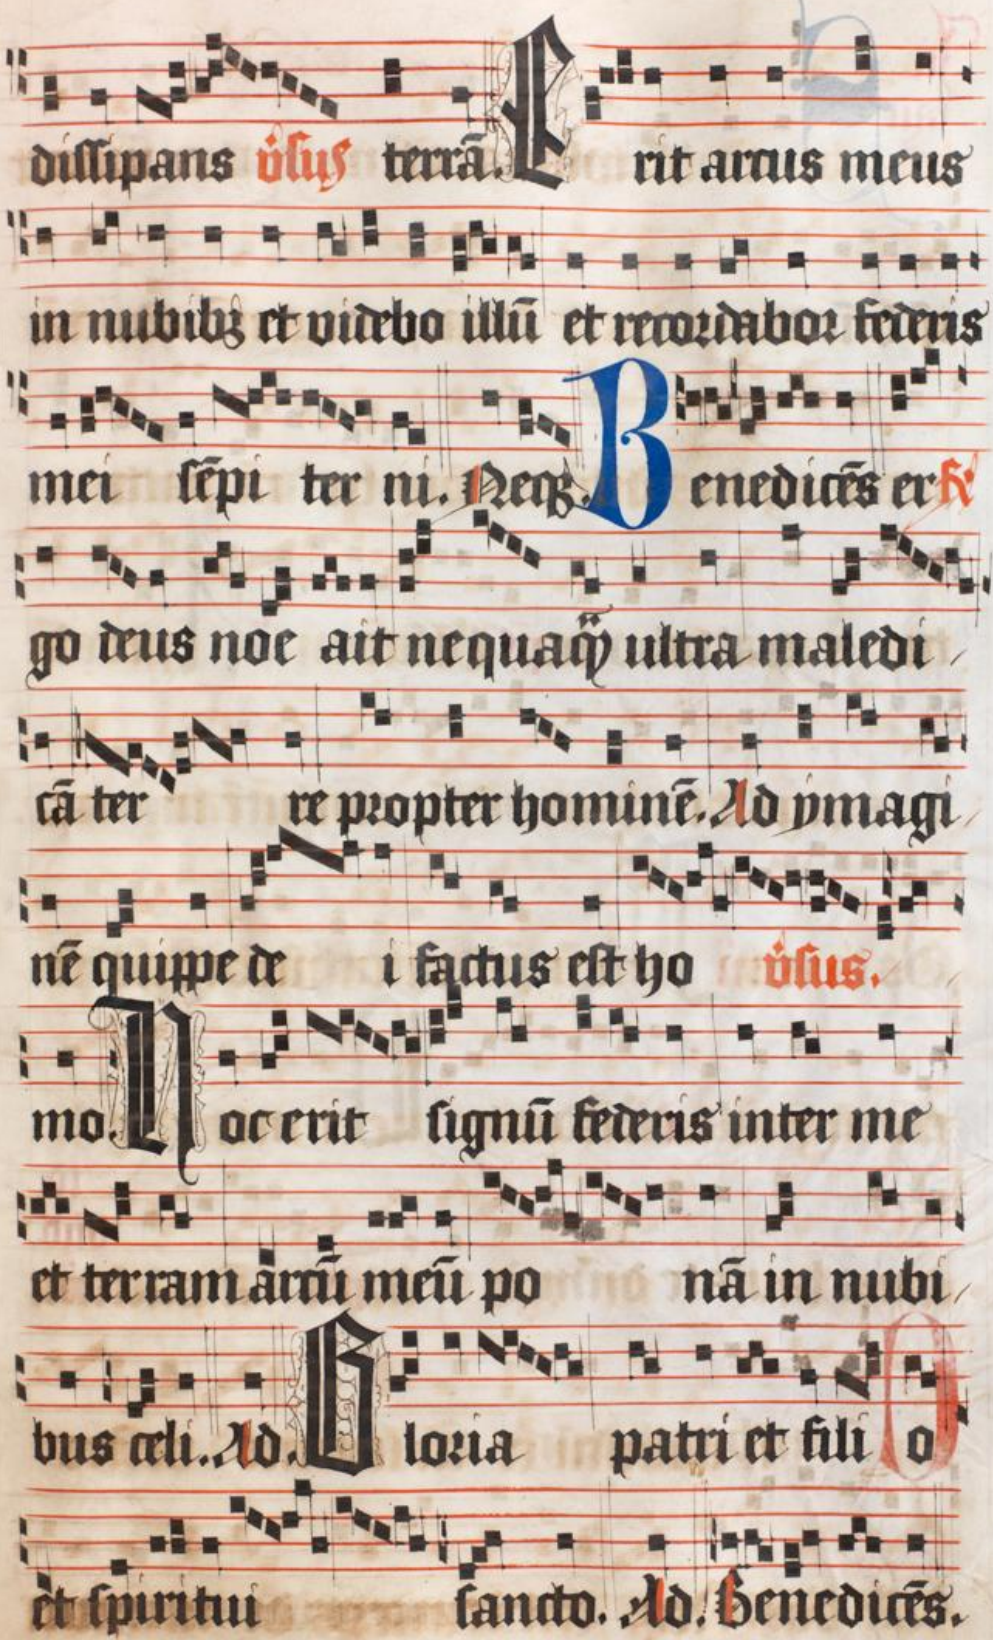 dissipans v̉sus terrā. Erit arcus meus
in nubibꝫ et videbo illū et recordabor federis
mei sēpi ter ni. Neqꝫ. Benedicēs er R̸
go deus noe ait nequaqͣꝫ ultra maledi
cā ter re propter hominē. Ad ymagi
nē quippe de i factus est ho v̉sus.
mo. Hoc erit signū federis inter me
et terram arcū meū po nā in nubi
bus celi. Ad. Gloria patri et fili o
et spiritui sancto. Ad. Benedicēs.